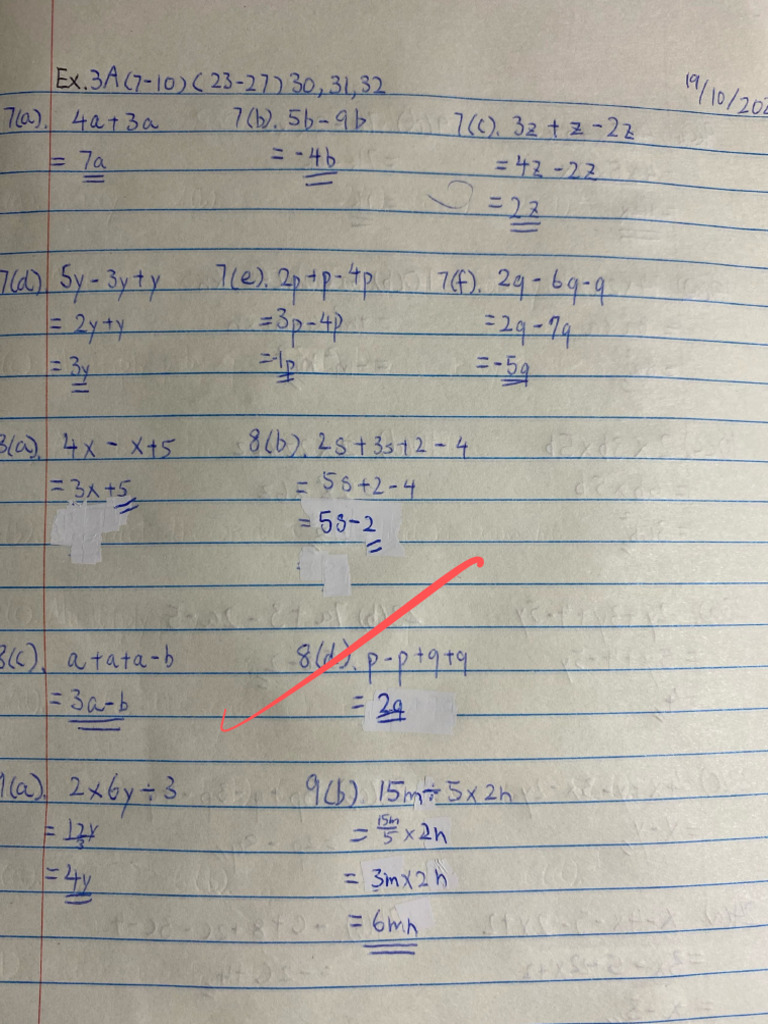 Ex.3A(7-10)(23-27)30,31,32
19/10/202
7(a). 4a+3a 7(b). 5b-9b 7(c). 3z+z-2z
= 7a = -4b = 4z-2z
= 2z
7(d) 5y-3y+y 7(e). 2p+p-4p 7(f). 2q-6q-q
= 2y+y =3p-4p =2q-7q
= 3y =-1p =-5q
8(a). 4x-x+5 8(b). 2s+3s+2-4
= 3x+5 = 5s+2-4
= 5s-2
8(c). a+a+a-b 8(d). p-p+q+q
= 3a-b = 2q
9(a). 2×6y÷3 9(b). 15m÷5×2n
= 12y/3 = 15m/5 ×2n
= 4y = 3m×2n
= 6mn